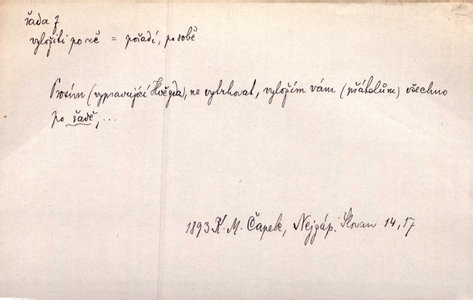 řada f
vyložiti po ně = pořadí, po sobě
Prosím (vypravující Hvězda), ne vytrhovat, vyložím vám (přátelům) všechno
po řadě, ...
1893 K. M. Čapek, Nejzáp. Slovan 14, 17